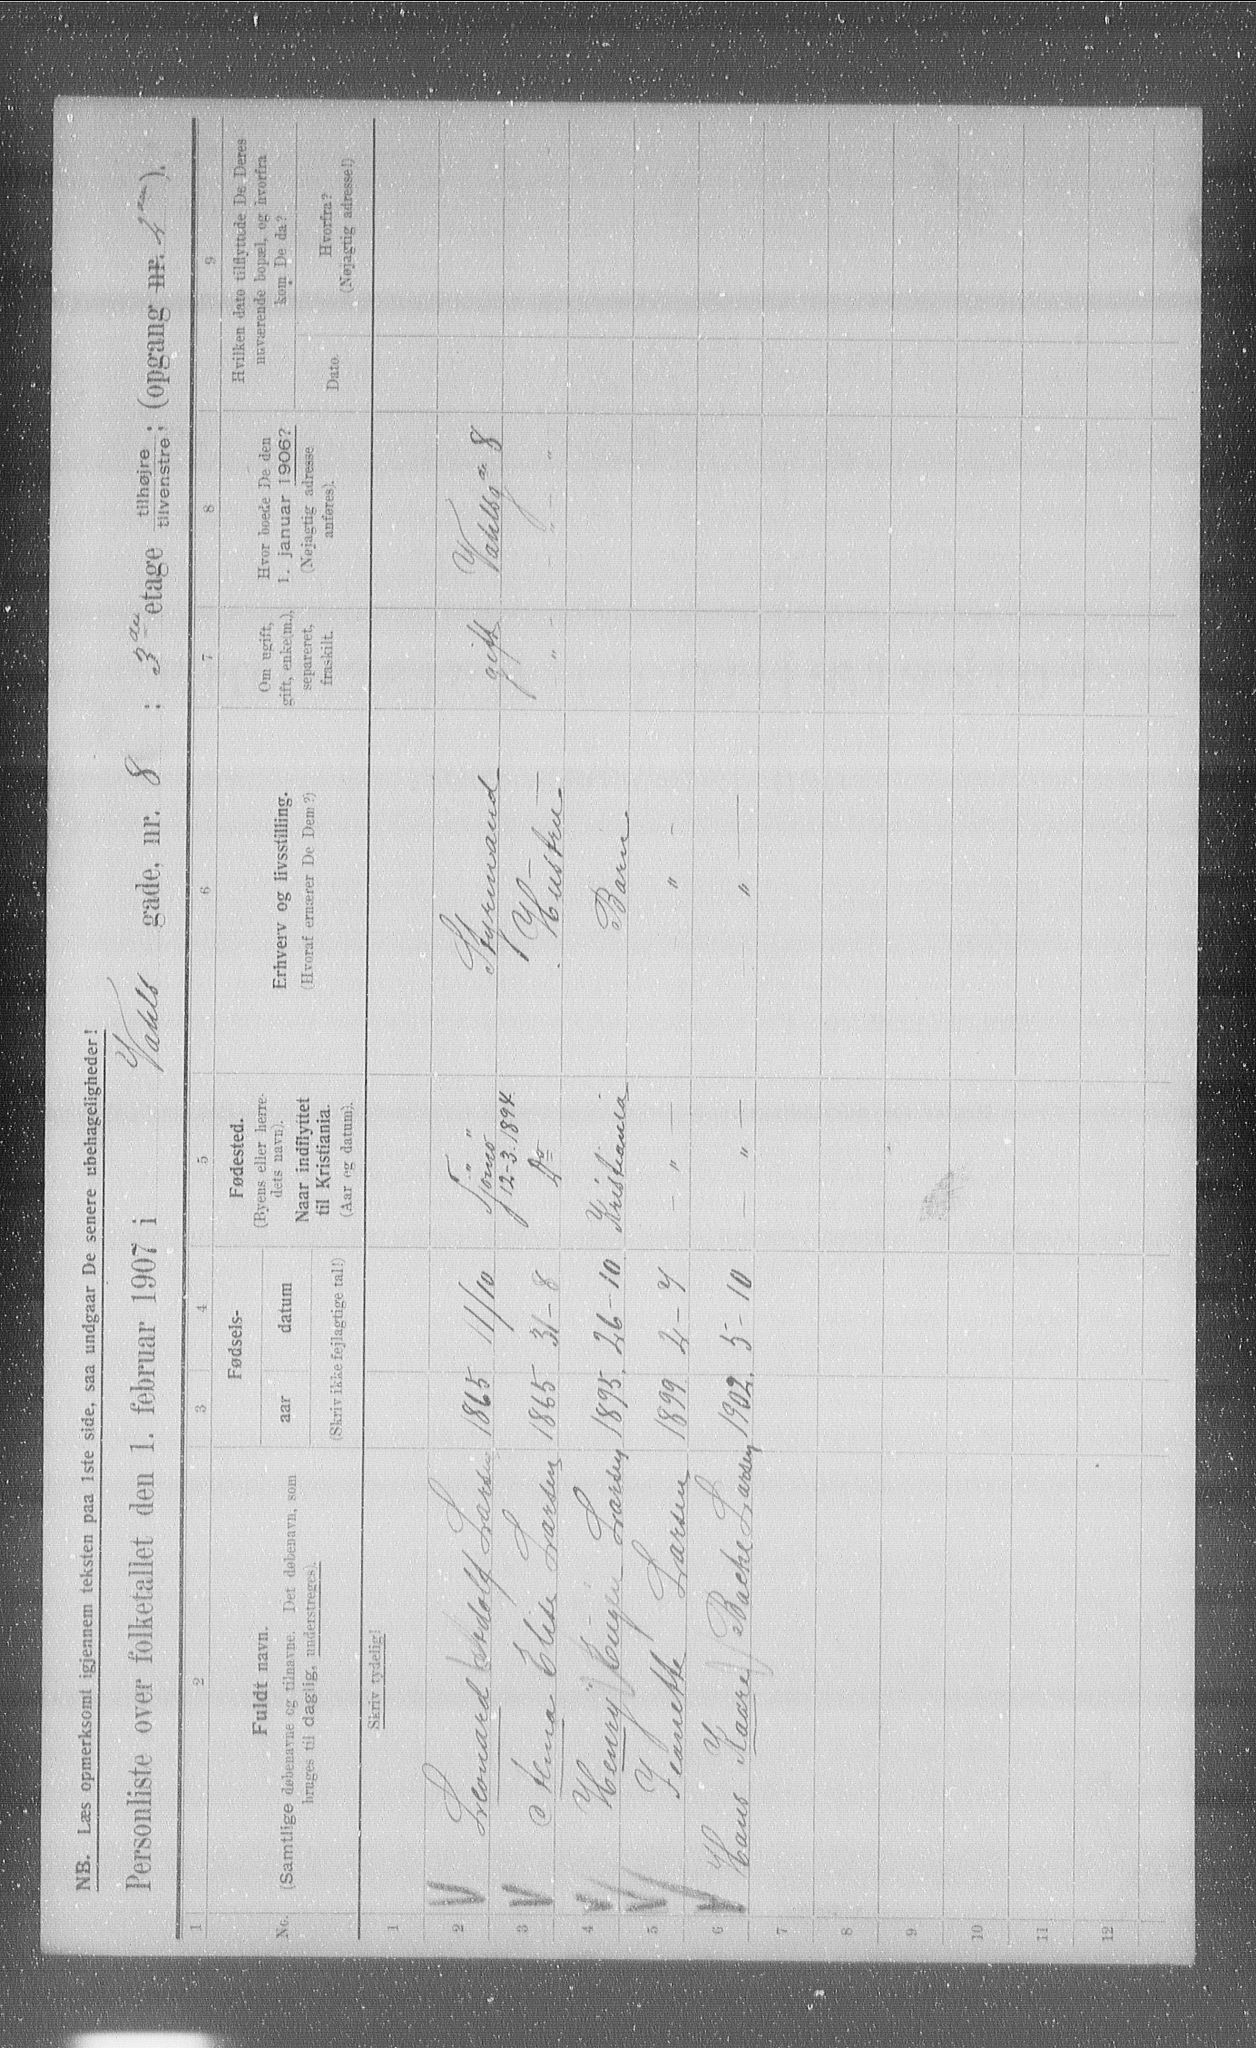 NB. Læs opmerksomt igjennem teksten paa 1ste side, saa undgaar De senere ubehageligheder!
Personliste over folketallet den 1. februar 1907 i Vahls gade, nr. 8 ; 3die etage tilhøjre ; tilvenstre ; (opgang nr. ).
1 2 3 4 5 6 7 8 9
No.
Fuldt navn.
(Samtlige døbenavne og tilnavne. Det døbenavn, som
bruges til daglig, understreges).
Skriv tydelig!
Fødsels-
aar datum
(Skriv ikke fejlagtige tal!)
Fødested.
(Byens eller herre-
dets navn).
Naar indflyttet
til Kristiania.
(Aar og datum).
Erhverv og livsstilling.
(Hvoraf ernærer De Dem?)
Om ugift,
gift, enke(m.),
separeret,
fraskilt.
Hvor boede De den
1. januar 1906?
(Nøjagtig adresse
anføres).
Hvilken dato tilflyttede De Deres
nuværende bopæl, og hvorfra
kom De da?
Dato.
Hvorfra?
(Nøjagtig adresse!)
1
2 Leonard Ardolf Larsen 1865 11/10 Tjømø " " 12-3.1894 Styrmand gift Vahlsg. 8
3 Anna Elise Larsen 1865 31-8 Do Hustru - " - - " - "
4 Henry Eugen Larsen 1895. 26-10 Kristiania Barn
5 Jeanette Larsen 1899 2-7 - " - - " -
6 Hans Kaare Bache Larsen 1902. 5-10 - " - " -
7
8
9
10
11
12